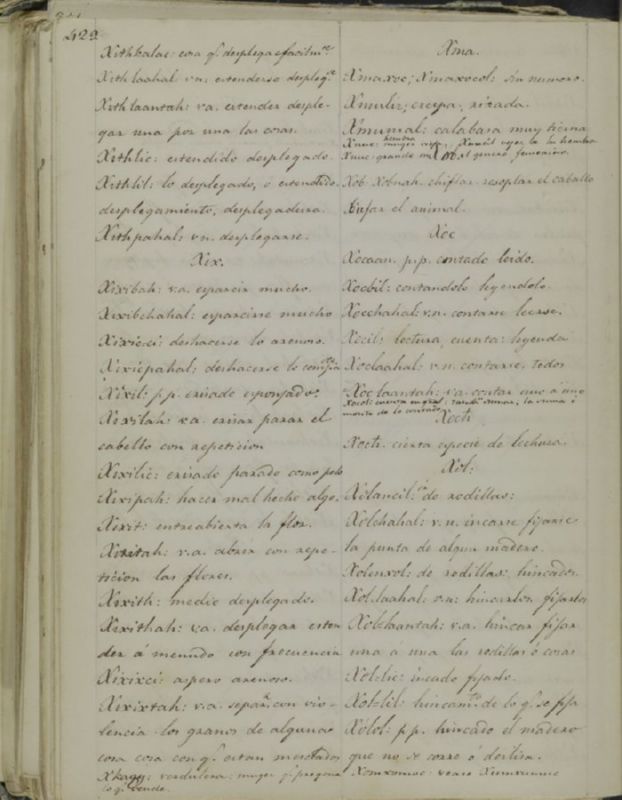 429
Xithkalac: cosa q.e desplega
Xith laahal v.a. estenderse despleg.e
Xith laantah: v.a. estender desple-
gar una por una las cosas.
Xithlic: estendido desplegado.
Xithlil: lo desplegado, ò estendido.
desplegamiento, desplegadura.
Xithpahal: v.n. desplegarse.
Xix.
Xixibah: v.a. esparcir mucho.
Xixibchahal: esparcirse mucho
Xixicci: deshacerse lo arenoso.
Xixicpahal: deshacerse lo
Xixil: p.p. erisado esponjado.
Xixilah: v.a. erisar parar el
cabello con repeticion
Xixilic: erisado parado como pelo
Xixipah: hacer mal hecho algo.
Xixit: entreabierta la flor.
Xixitah: v.a. abrir con repe-
ticion las flores.
Xixith: medio desplegado.
Xixithah: v.a. desplegar esten
der á menudo con frecuencia
Xixixci: aspero arenoso.
Xixixtah: v.a. separ.r con vio-
lencia los granos de alguna
cosa cosa con q.e estan mesclados
verdulera: muger q.e pregona
lo q.e vende.
Xma.
Xmaxoc; Xmaxocol: sin numero.
Xmulix; crespa, rizada.
Xmumal: calabasa muy tierna
hembra
Xnuc: muger vieja, Xnucil vejez de la hembra
Xnuc: grande en el genero femenino.
Xob Xobnah chiflar resoplar el caballo
bufar el animal.
Xoc
Xocaan. p.p. contado leido.
Xocbil: contandolo leyendolo.
Xocchahal: v.n. contarse leerse.
Xocil: lectura, cuenta: leyenda
Xoclaahal: v.n. contarse, todos
Xoclaantah: v.a. contar uno a uno
la suma ó
monto de lo contado.
Xoch
Xoch. cierta especie de lechuza.
Xol:
Xolancil: de rodillas:
Xolchahal: v.n. incarse fijarse
la punta de algun madero.
Xolenxol: de rodillas: hincados.
Xol-laahal: v.n: hincarlos fijarlos
Xol-laantah: v.a. hincar fijar
una a una las rodillas ó cosas
Xol-lic: incado fijado.
Xol-lil: hincam.to de lo q.e se fija
Xolol: p.p. hincado el madero
que no se corre ó desliza.
Xomxomac: vease Xumxumuc